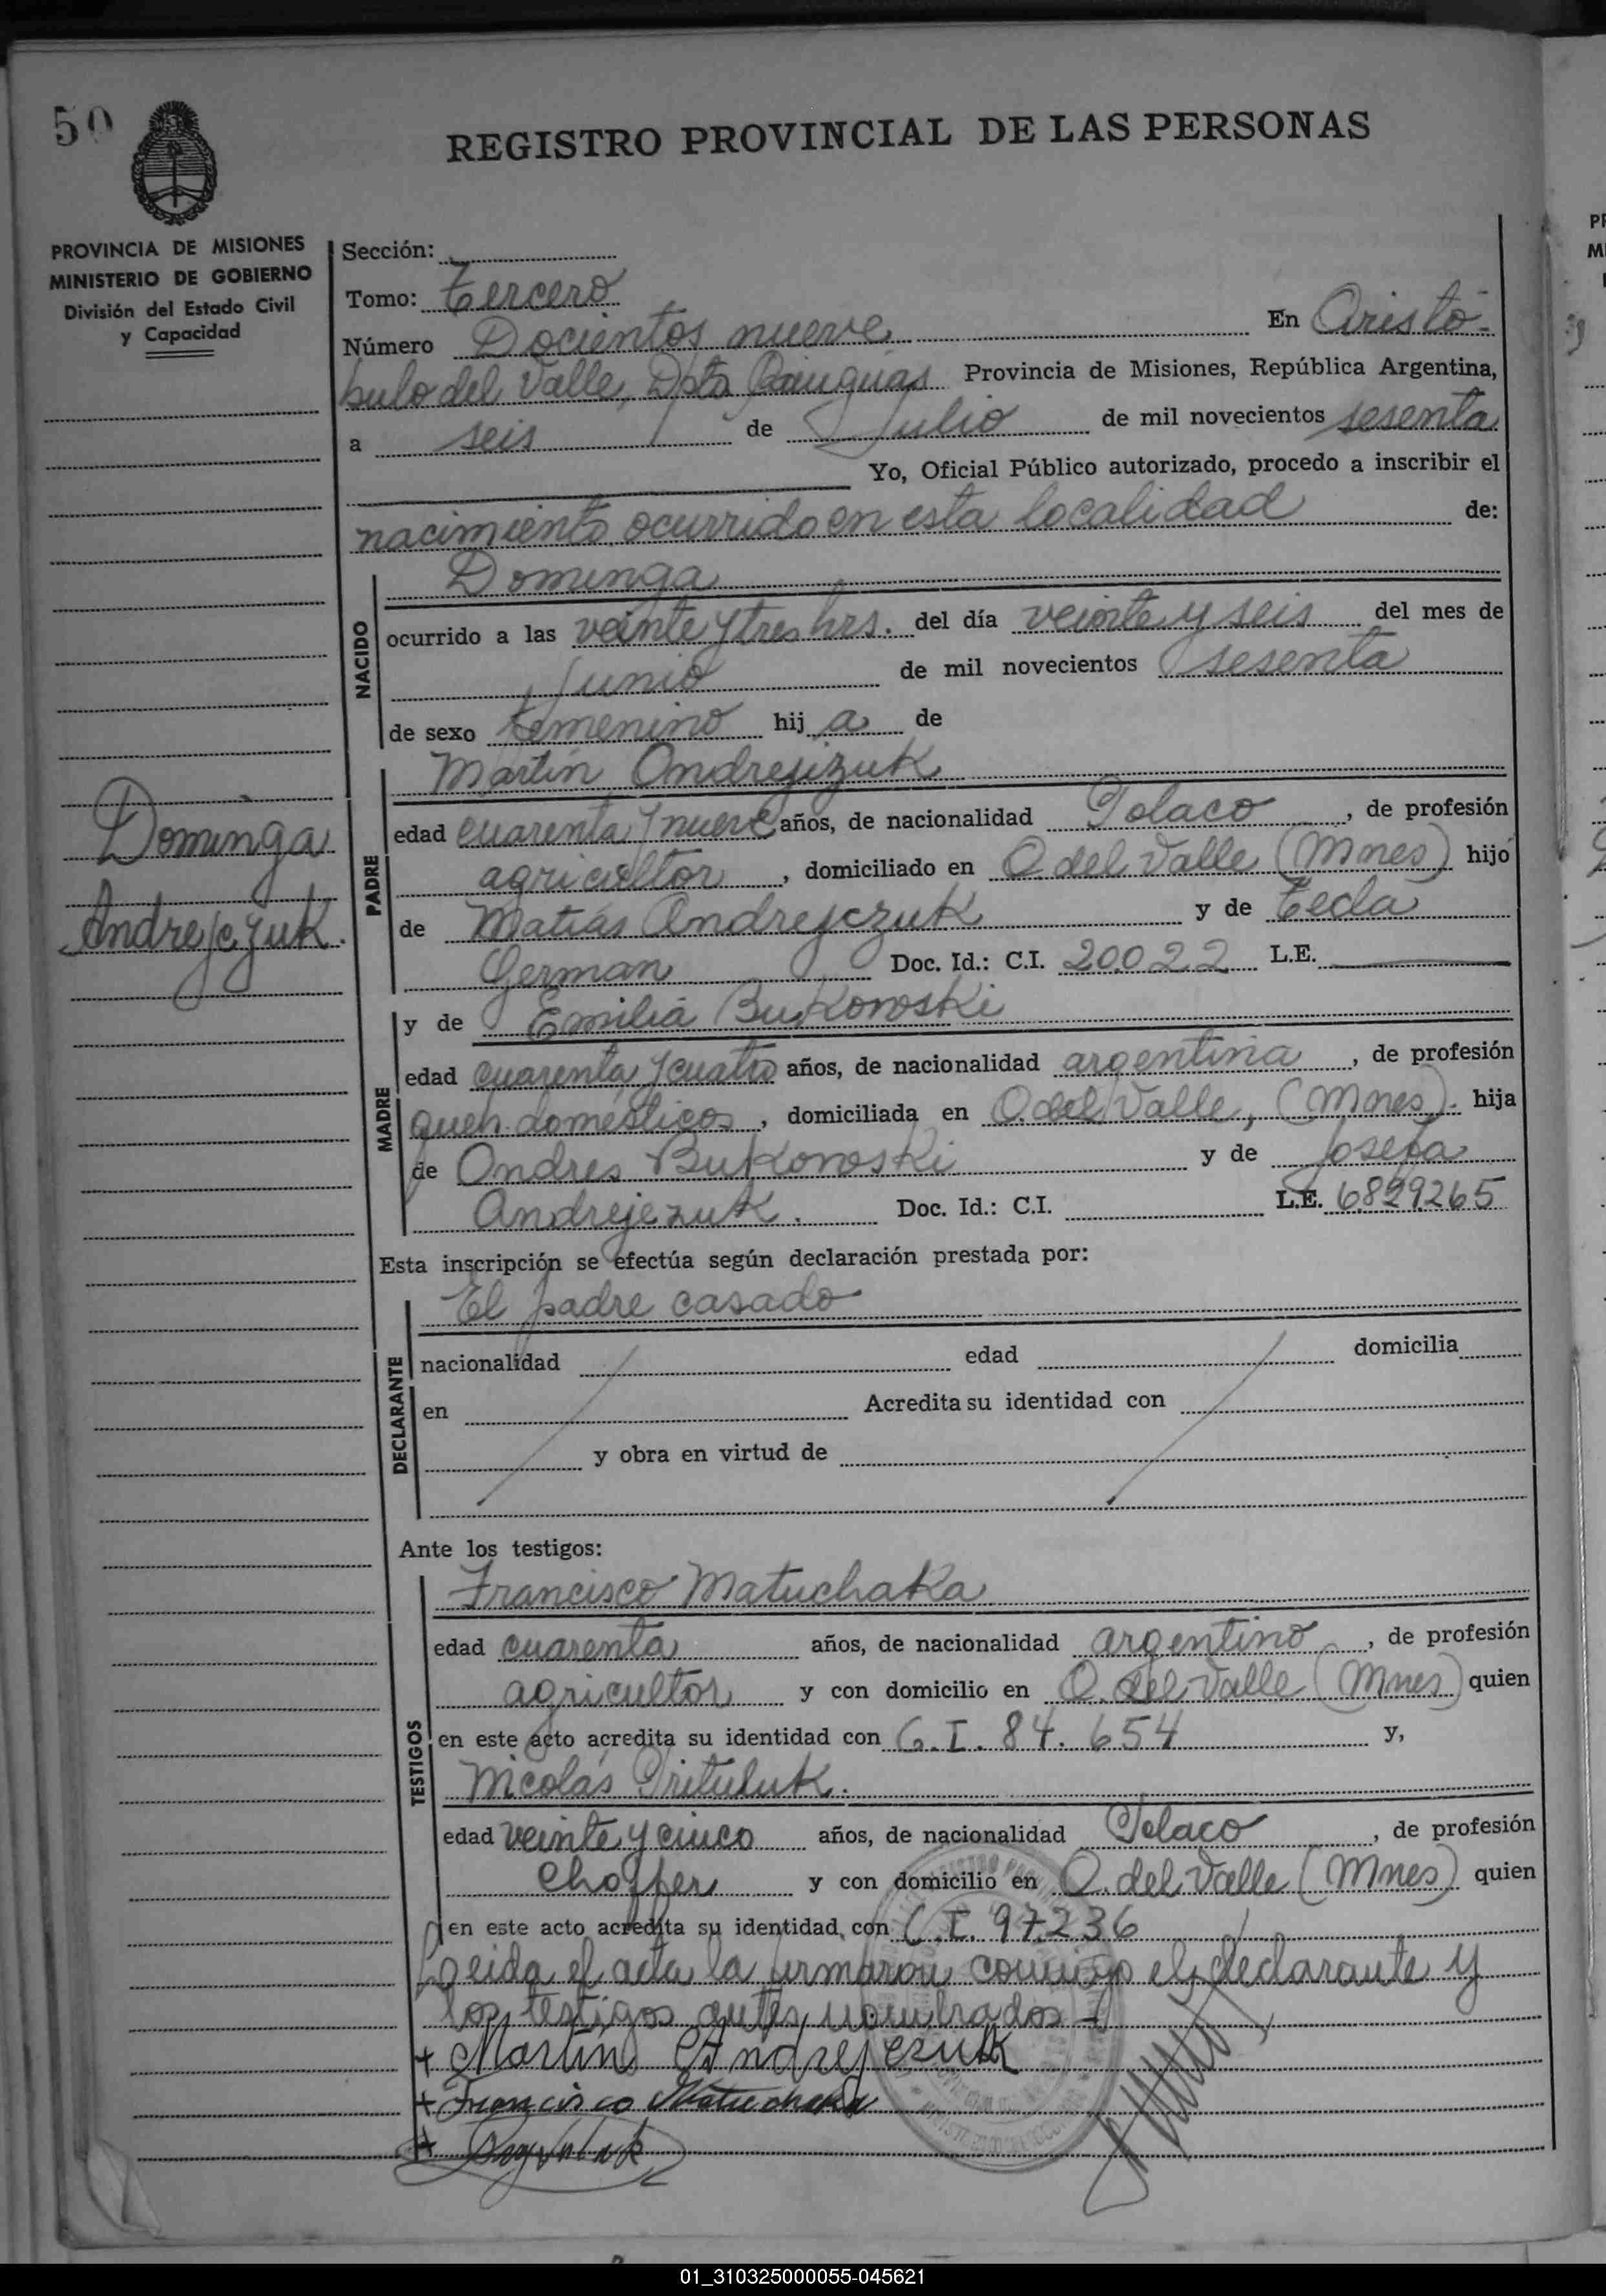 50
REGISTRO PROVINCIAL DE LAS PERSONAS
PROVINCIA DE MISIONES
MINISTERIO DE GOBIERNO
División del Estado Civil
y Capacidad
Sección:
Tomo: Tercero
Número Docientos nueve En Aristó-
bulo del Valle, Dpto Cainguas Provincia de Misiones, República Argentina,
a seis de Julio de mil novecientos sesenta
Yo, Oficial Público autorizado, procedo a inscribir el
nacimiento ocurrido en esta localidad de:
NACIDO
Dominga
ocurrido a las veinte y tres hrs. del día veinte y seis del mes de
Junio de mil novecientos sesenta
de sexo femenino hij a de
Dominga
Andrejczuk.
PADRE
Martín Andrejczuk
edad cuarenta y nueve años, de nacionalidad Polaco, de profesión
agricultor, domiciliado en A. del Valle (Mnes) hijo
de Matías Andrejczuk y de Tecla
German Doc. Id.: C.I. 20.022 L.E.
MADRE
y de Emilia Bukowski
edad cuarenta y cuatro años, de nacionalidad argentina, de profesión
queh. domésticos, domiciliada en A. del Valle, (Mnes). hija
de Andres Bukowski y de Josefa
Andrejczuk. Doc. Id.: C.I. L.E. 6.829.265
Esta inscripción se efectúa según declaración prestada por:
DECLARANTE
El padre casado
nacionalidad edad domicilia
en Acredita su identidad con
y obra en virtud de
Ante los testigos:
TESTIGOS
Francisco Matuchaka
edad cuarenta años, de nacionalidad argentino, de profesión
agricultor y con domicilio en A. del Valle (Mnes) quien
en este acto acredita su identidad con C.I. 84.654 y,
Nicolás Prituluk.
edad veinte y cinco años, de nacionalidad Polaco, de profesión
Choffer y con domicilio en A. del Valle (Mnes) quien
en este acto acredita su identidad con C.I. 97.236
Leida el acta la firmaron conmigo el declarante y
los testigos antes nombrados
+ Martin Andrejczuk
+ Francisco Matuchaka
+
01_310325000055-045621